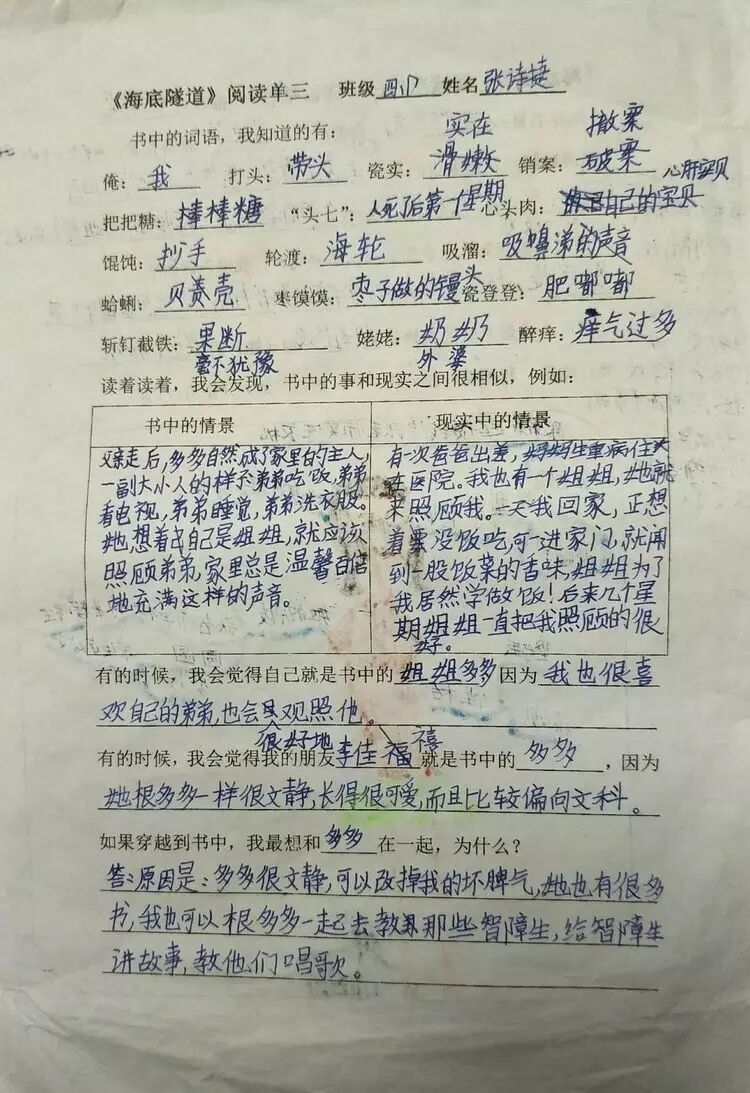 《海底隧道》阅读单三 班级 四 姓名 张诗婕
实在 撤案
书中的词语，我知道的有：
俺：我 打头：带头 瓷实：滑嫩 销案：破案 心肝宝贝
把把糖：棒棒糖 “头七”：人死后第一个星期 心头肉：自己的宝贝
馄饨：抄手 轮渡：海轮 吸溜：吸鼻涕的声音
蛤蜊：贝类壳 枣馍馍：枣子做的镘头 瓷登登：肥嘟嘟
斩钉截铁：果断 姥姥：奶奶 醉痒：痒气过多
毫不犹豫 外婆
读着读着，我会发现，书中的事和现实之间很相似，例如：
书中的情景 现实中的情景
父亲走后，多多自然成了家里的主人，
一副大小人的样子。弟弟吃饭，弟弟
看电视，弟弟睡觉，弟弟洗衣服。
她想着自己是姐姐，就应该
照顾弟弟，家里总是温馨百倍
地充满这样的声音。
有一次爸爸出差，妈妈生重病住
在医院。我也有一个姐姐，她就
来照顾我。一天我回家，正想
着要没饭吃，可一进家门，就闻
到一股饭菜的香味，姐姐为了
我居然学做饭！后来几个星
期姐姐一直把我照顾的很
好。
有的时候，我会觉得自己就是书中的 姐姐多多，因为 我也很喜
欢自己的弟弟，也会照他。
很好地 禧
有的时候，我会觉得我的朋友李佳福就是书中的 多多 ，因为
她根多多一样很文静，长得很可爱，而且比较偏向文科。
如果穿越到书中，我最想和 多多 在一起，为什么？
答：原因是：多多很文静，可以改掉我的坏脾气，她也有很多
书，我也可以根多多一起去教那些智障生，给智障生
讲故事，教他们唱歌。